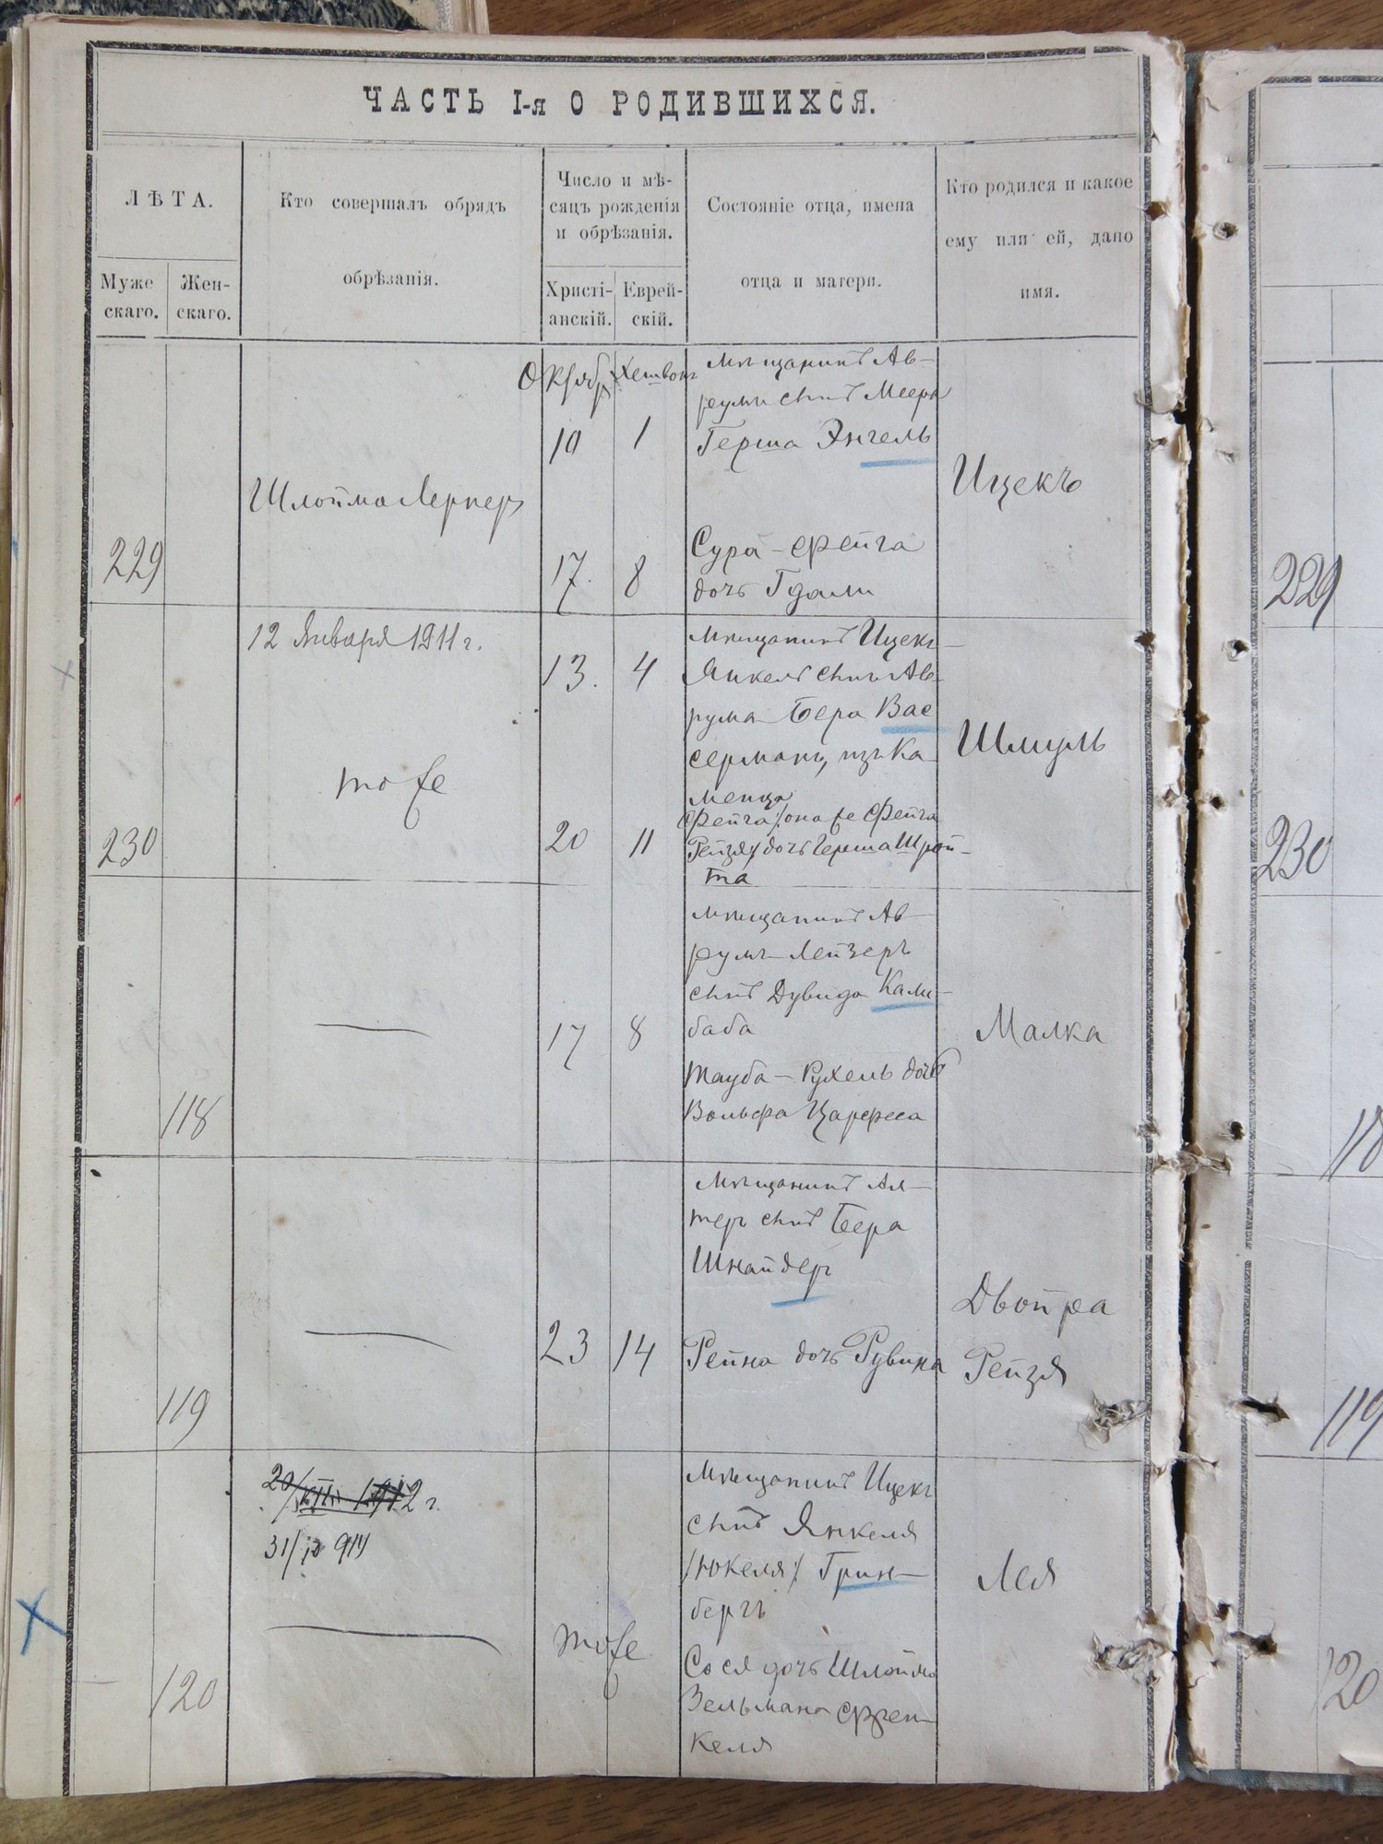 ЧАСТЬ I-я О РОДИВШИХСЯ.
ЛѢТА.
Муже
скаго.
Жен-
скаго.
Кто совершалъ обрядъ
обрѣзанія.
Число и мѣ-
сяцъ рожденія
и обрѣзанія.
Христі-
анскій.
Еврей-
скій.
Состояніе отца, имена
отца и матери.
Кто родился и какое
ему или ей, дано
имя.
229
Шлойма Лернеръ
Октябр
10
17.
1
8
мѣщанинъ Ав-
румъ сынъ Меера
Герша Энгель
Сура-Фейга
дочь Гдали
Ицекъ
230
12 Января 1911 г.
тоже
13.
20
4
11
мѣщанинъ Ицекъ-
Янкель сынъ Ав-
рума Бера Вас
серманъ, изъ Ка
менца
Фейга /:она же Фейга
Рейзя/ дочь Герша Шрой-
та
Шмуль
118
17
8
мѣщанинъ Ав-
румъ-Лейзеръ
сынъ Дувида Кали-
баба
Тауба-Рухель дочь
Вольфа
Малка
119
23
14
мѣщанинъ Аль-
теръ сынъ Бера
Шнайдеръ
Рейна дочь Рувина
Двойра
Рейзя
120
20/XII 1912 г.
31/10 914
тоже
мѣщанинъ Ицекъ
сынъ Янкеля
/Юкеля/ Грин-
бергъ
Сося дочь Шлоймо
Зельмана Френ-
келя
Лея
229
230
118
119
120